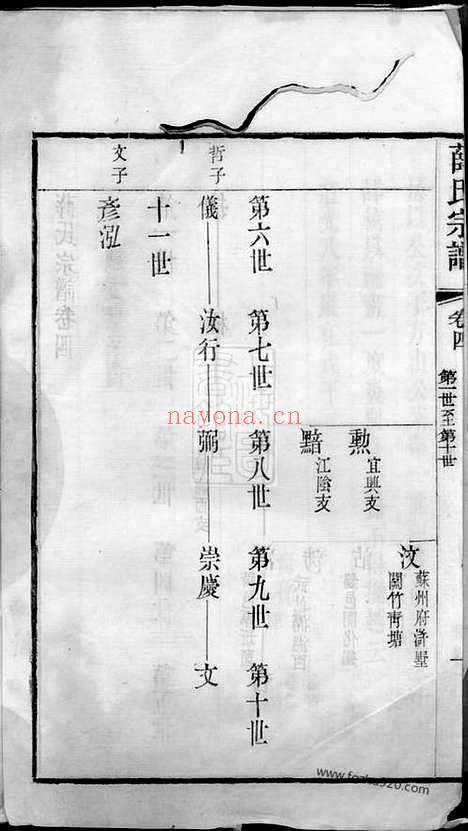 薛氏宗譜
卷四
第一世至第十世
汶
蘇州府滸墅
關竹青塘
勲
宜興支
黯
江陰支
第六世 第七世 第八世 第九世 第十世
哲子
儀 汝行 弼 崇慶 文
十一世
文子
彥泓
nayona.cn